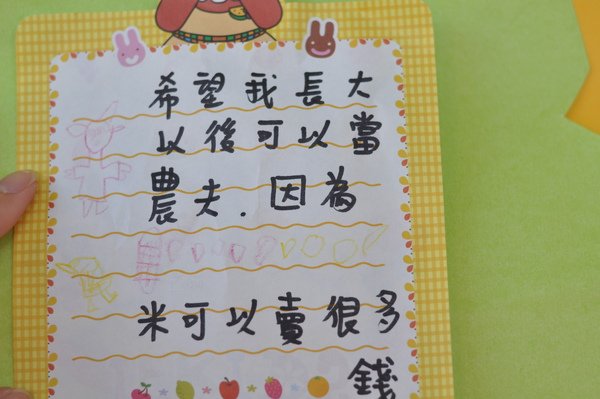 希望我長大
以後可以當
農夫.因為
米可以賣很多
錢